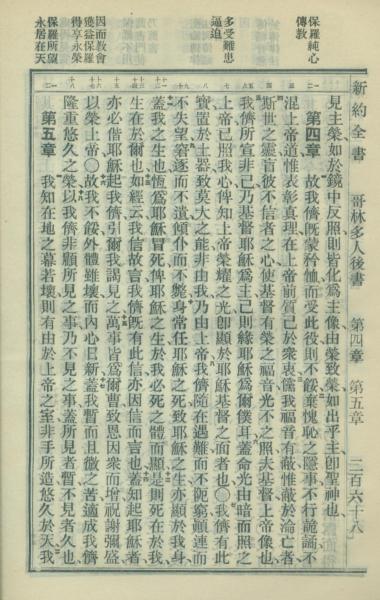 新約全書 哥林多人後書 第四章 第五章 二百六十八
保羅純心
傳教
多受難患
逼迫
因而教會
獲益保羅
得享永榮
保羅所望
永居在天
見主榮如於鏡中反照則皆化爲主像由榮致榮如出乎主卽聖神也
第四章 故我儕旣蒙矜恤而受此役則不餒棄愧恥之隱事不行詭譎不
混上帝道惟表彰眞理在上帝前質己於衆衷儻我福音有蔽惟蔽於淪亡者
斯世之靈盲彼不信者之心使基督有榮之福音光不之照夫基督上帝像也
我儕所宣非己乃基督耶穌爲主己則緣耶穌爲爾僕耳蓋命光由暗而照之
上帝已照我心俾知上帝榮耀之光卽顯於耶穌基督之面者也〇我儕有此
寶置於土器致莫大之能非由我乃由上帝我儕隨在遇難而不阨窮頓連而
不失望窘逐而不遺傾仆而不斃身常任耶穌之死致耶穌之生亦顯於我身
蓋我之生也恆爲耶穌冒死俾耶穌之生於我必死之體而顯是則死在於我
生在於爾也如經云我信故言我儕旣有此信亦因信而言也蓋知起耶穌者
亦必偕耶穌起我儕引爾我謁見之萬事皆爲爾曹致恩因衆而增祝謝彌盛
以榮上帝〇故我不餒外體雖壞而內心日新蓋我暫而且微之苦適成我儕
隆重悠久之榮以我儕非顧所見之事乃不見之事蓋所見者暫不見者久也
第五章 我知在地之幕若壞則有由於上帝之室非手所造悠久於天我